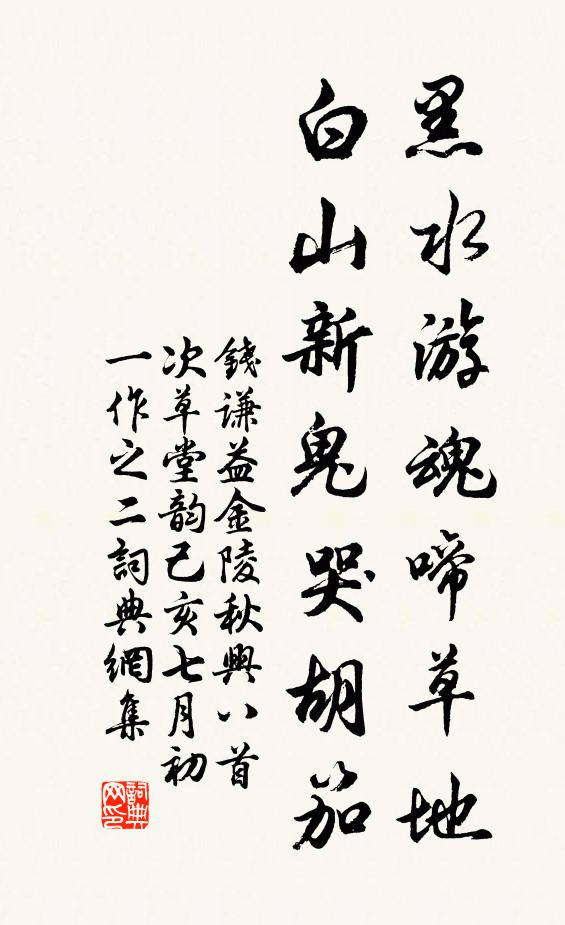 黑水游魂啼草地
白山新鬼哭胡笳
錢谦益金陵秋興八首
次草堂韵己亥七月初
一作之二詞典網集
詞典网印